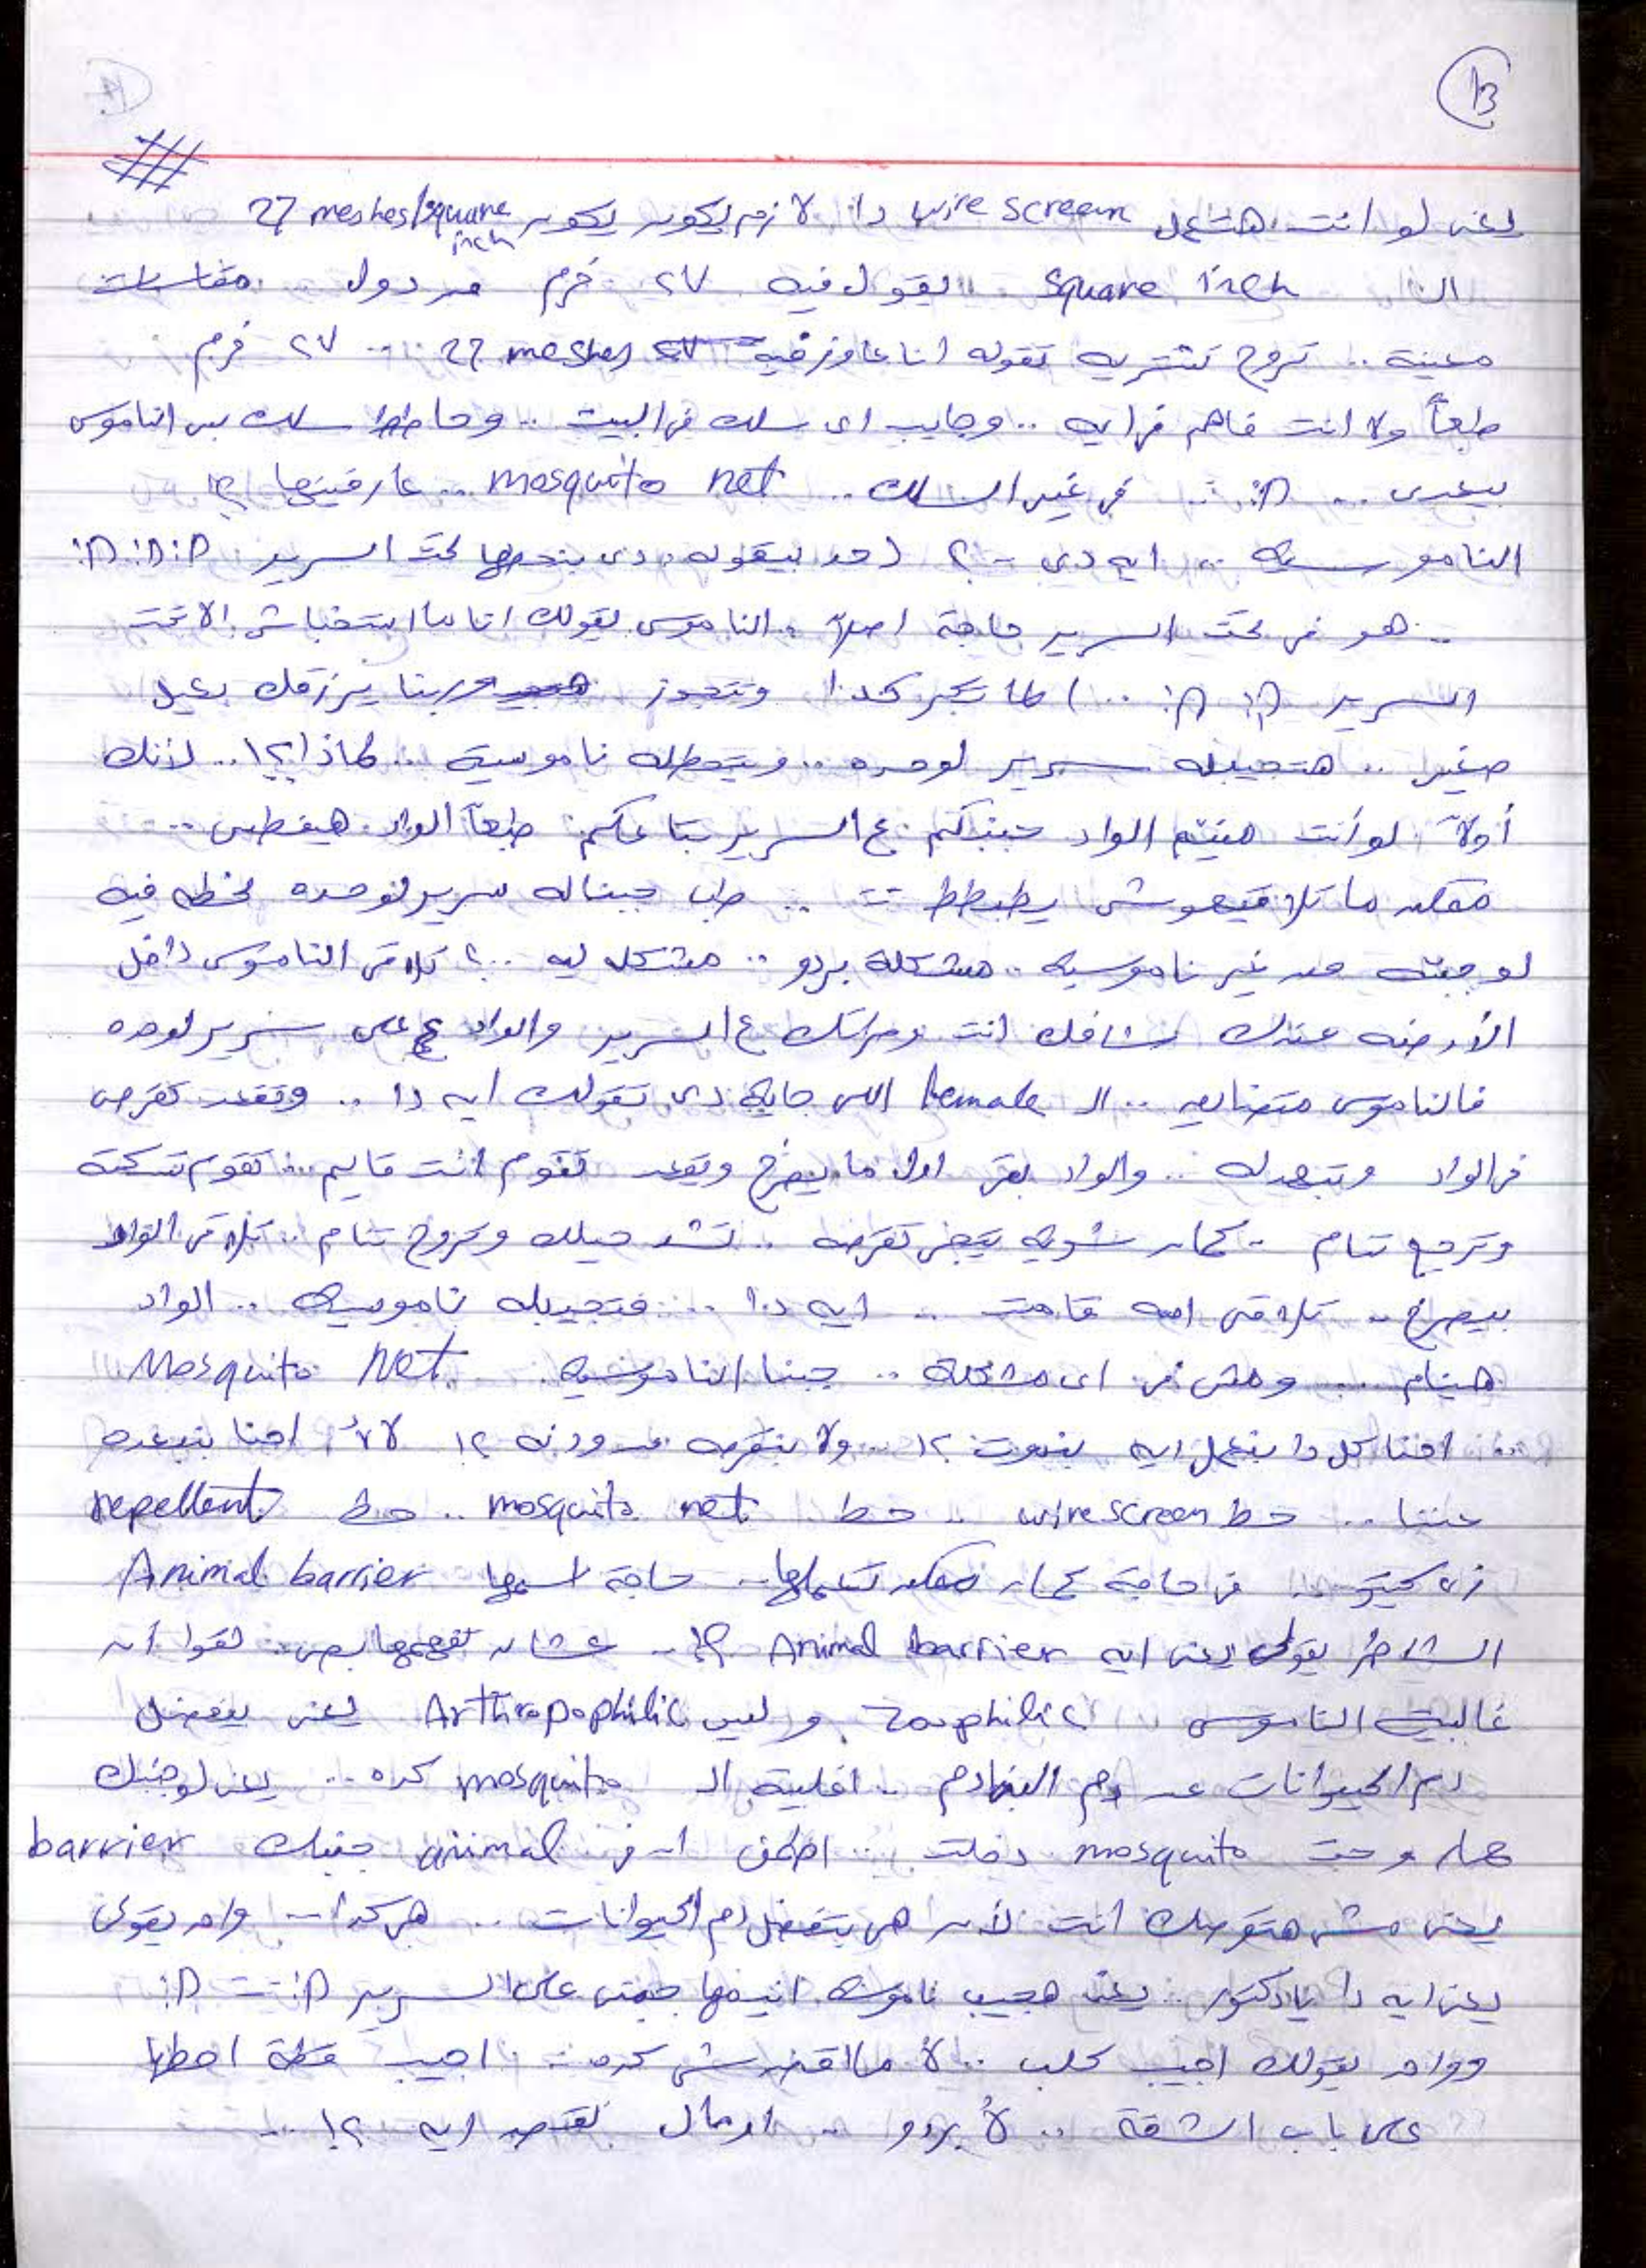 13
يعنى لو انت هتعمل wire screen دا لازم يكون يكون 27 meshes/square inch
الـ square inch يقولك فيه ٢٧ خرم من دول مقاسات
معينة .. تروح تشتريه تقوله انا عاوز فيه 27 meshes .. ٢٧ خرم
طبعاً ولا انت فاهم فى ايه .. وجايب اى سلك فى البيت .. وحاطط سلك بس الناموس
بيعدى .. :D .. فى غير السلك .. mosquito net .. عارفينها ؟!
الناموسيه .. ايه دى ..؟ (حد بيقوله دى بنحطها تحت السرير :D :D :D
.. هو فى تحت السرير حاجة اصلاً .. الناموس يقولك انا ما ابتخباش الا تحت
السرير :D :D ..) لما تكبر كدا وتتجوز وربنا يرزقك بعيل
صغير .. هتجيبله سرير لوحده .. وتحطله ناموسية .. لماذا ؟! .. لأنك
أولاً لو أنت هتنيم الواد جنبكم ع السرير بتاعكم طبعاً الواد هيفطس ..
ممكن ما تلاقيهوش .. طب جبناله سرير لوحده نحطه فيه
لو جبته من غير ناموسيه .. مشكلة بردو .. مشكله ليه ..؟ تلاقى الناموس داخل
الأوضه عندك شافك انت ومراتك ع السرير والواد على سرير لوحده
فالناموس متضايق .. الـ female اللى جايه دى تقولك ايه دا .. وتقعد تقرص
فى الواد وتبهدله .. والواد بقى اول ما يصرخ ويقعد تقوم انت قايم .. تقوم تسكته
وترجع تنام .. كمان شويه تيجى تقرصه .. تشد حيلك وتروح تنام .. تلاقى الواد
بيصرخ .. تلاقى امه قامت .. ايه دا .. فتجيبله ناموسيه .. الواد
هينام .. ومفيش اى مشكلة .. جبنا الناموسيه Mosquito Net
.. احنا كل دا بنعمل ايه بنموت ؟! .. ولا بنقرصه من ودنه ؟! لأ احنا بنبعده
عننا .. حط wire screen .. حط mosquito net .. حط repellent
زى .. فى حاجة كمان ممكن تعملها .. حاجة اسمها Animal barrier
الشاطر يقولى يعنى ايه Animal barrier ؟! .. عشان تفهمها بص .. لقوا أن
غالبية الناموس zoophilic وليس Arthropophilic يعنى بيفضل
دم الحيوانات عن دم البنادم .. اغلبية الـ mosquito كده .. يعنى لو جنبك
حمار وجت mosquito دخلت .. animal جنبك barrier
يعنى مش هتقرصك انت لأن هى بتفضل دم الحيوانات .. هى كدا .. واحد يقولى
يعنى ايه دا يا دكتور .. يعنى هجيب جاموسه انيمها جمبى على السرير :D .. :D
وواحد يقولك اجيب كلب .. لأ ما اقدرش .. اجيب قطة احطها
على باب الشقة .. لأ بردو .. امال تقصد ايه ؟! ..